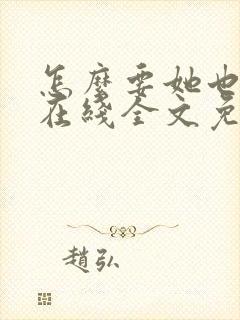 怎麼要她也
在綫全文免
趙弘